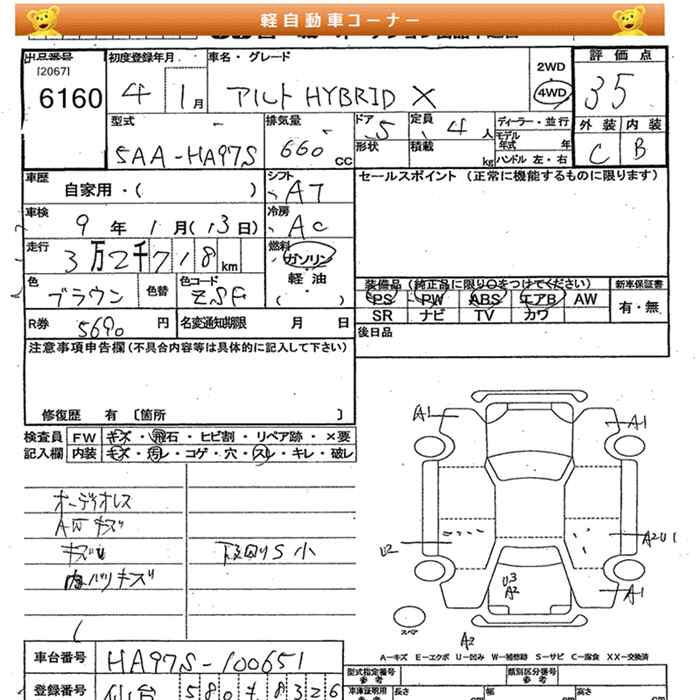 軽自動車コーナー
出品番号 初度登録年月 車名・グレード 2WD 評価点
[2067]
6160 4 1月 アルト HYBRID X 4WD 35
型式 排気量 ドア 5 定員 4人 ディーラー・並行 外装 内装
モデル年式 年
5AA-HA97S 660cc 形状 積載 kg ハンドル 左・右 C B
車歴 シフト セールスポイント (正常に機能するものに限ります)
自家用・( ) AT
車検 冷房
9年1月(13日) AC
走行 燃料
3万2千718km ガソリン
軽油
色 色替 色コード ( ) 装備品(純正品に限り○をつけてください) 新車保証書
ブラウン ZSF PS PW ABS エアB AW 有・無
SR ナビ TV カワ
R券 5690円 名変通知期限 月 日 後日品
注意事項申告欄(不具合内容等は具体的に記入して下さい)
修復歴 有 〔箇所 〕
検査員 FW キズ・飛石・ヒビ割・リペア跡・×要
記入欄 内装 キズ・汚レ・コゲ・穴・スレ・キレ・破レ
A1 A1
オーディオレス
キズ 下廻りS小
U2 A2U1
内ハリキズ
U3
A2
A1
スペア
A2
A−キズ E−エクボ U−凹み W−補修跡 S−サビ C−腐食 XX−交換済
車台番号 HA97S-100651
型式指定番号 類別区分番号
登録番号 仙台 580 8326
長さ 幅 高さ